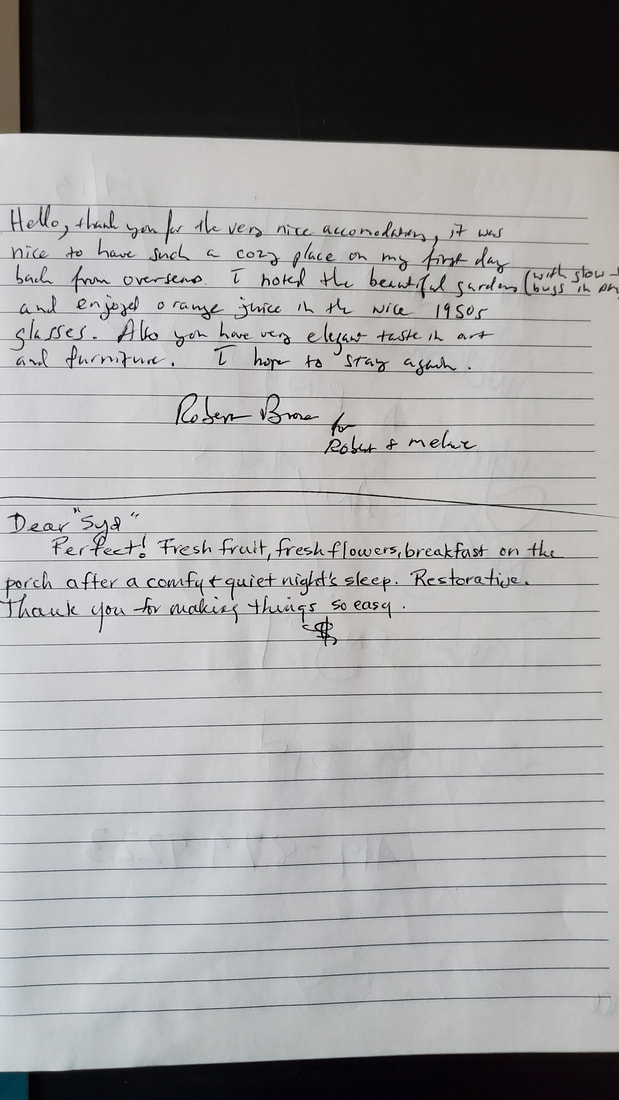 Hello, thank you for the very nice accomodations, it was
nice to have such a cozy place on my first day
back from overseas. I noted the beautiful gardens (with glow-
bugs in
and enjoyed orange juice in the nice 1950s
glasses. Also you have very elegant taste in art
and furniture. I hope to stay again.
for
Robert & Melanie
Dear "Syd"
Perfect! Fresh fruit, fresh flowers, breakfast on the
porch after a comfy & quiet night's sleep. Restorative.
Thank you for making things so easy.